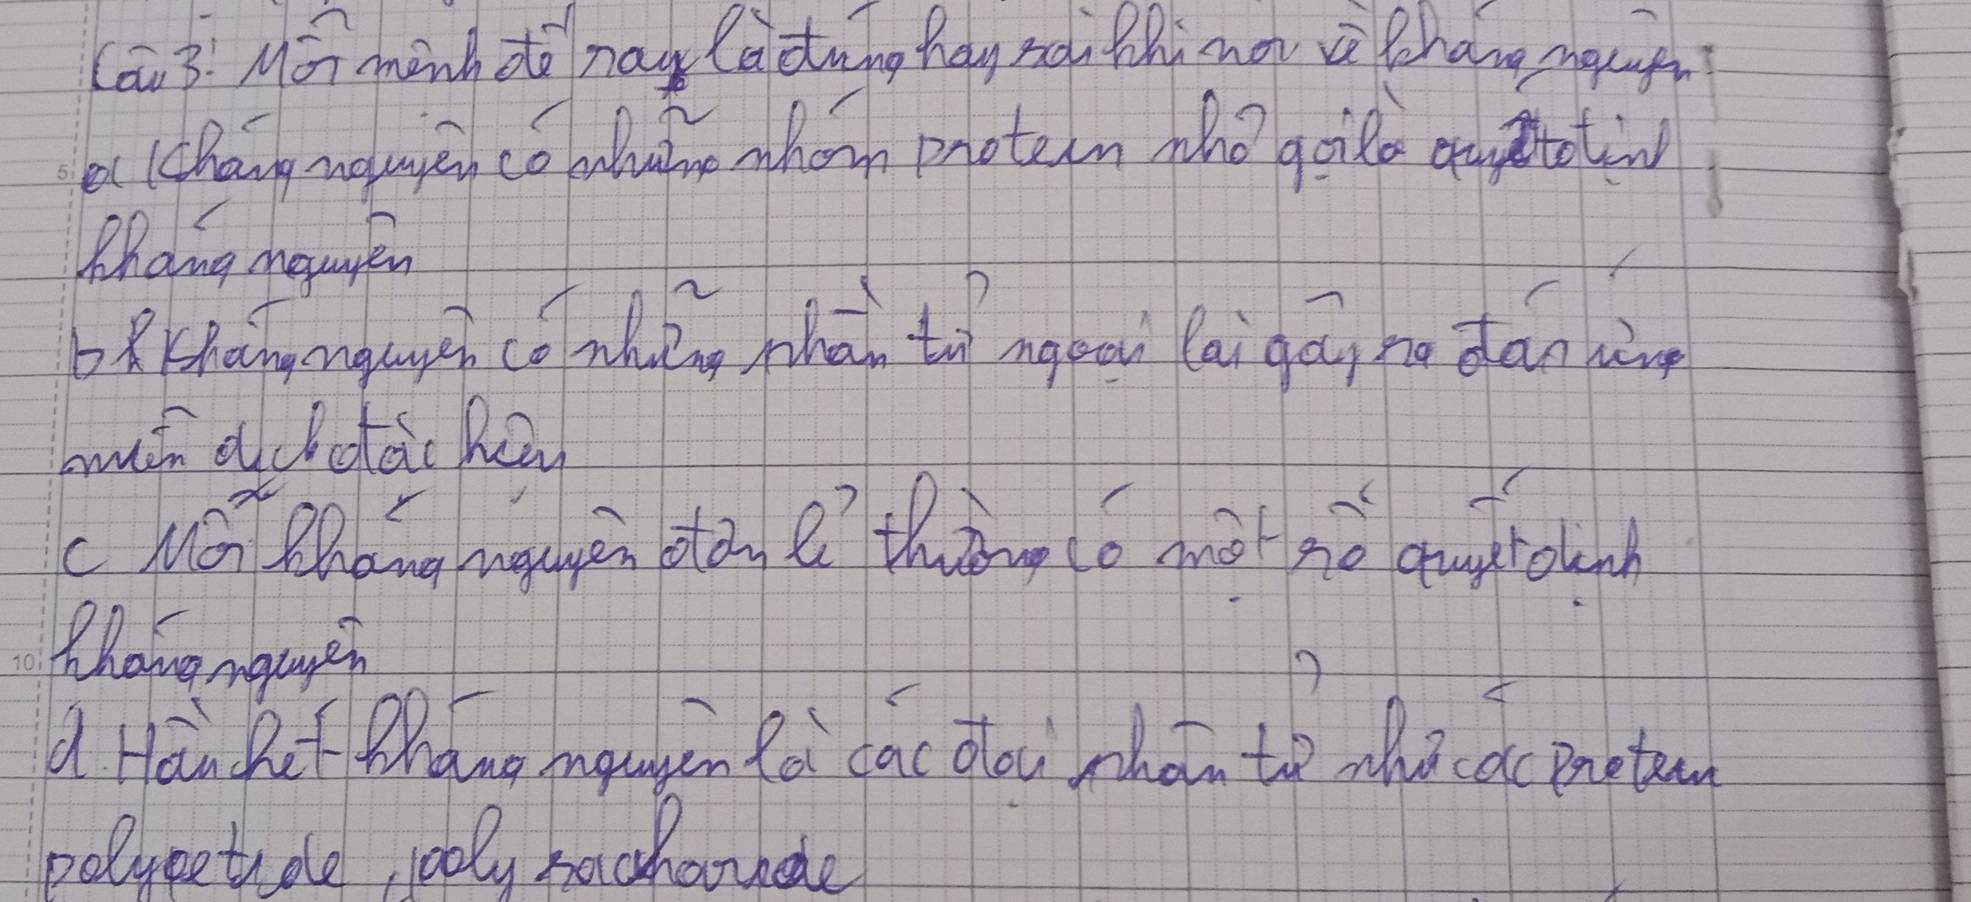 Câu 3: Mỗi mệnh đề nay là đúng hay sai khi nói về kháng nguyên
a Kháng nguyên có những nhóm protein nhỏ gọi là quyết định
kháng nguyên
b Kháng nguyên có những phân tử ngoại lai gây ra đáp ứng
miễn dịch đặc hiệu
c Mỗi kháng nguyên đơn lẻ thường có một số quyết định
kháng nguyên
d. Hầu hết kháng nguyên là các đại phân tử như các protein
polypetide, poly saccharide